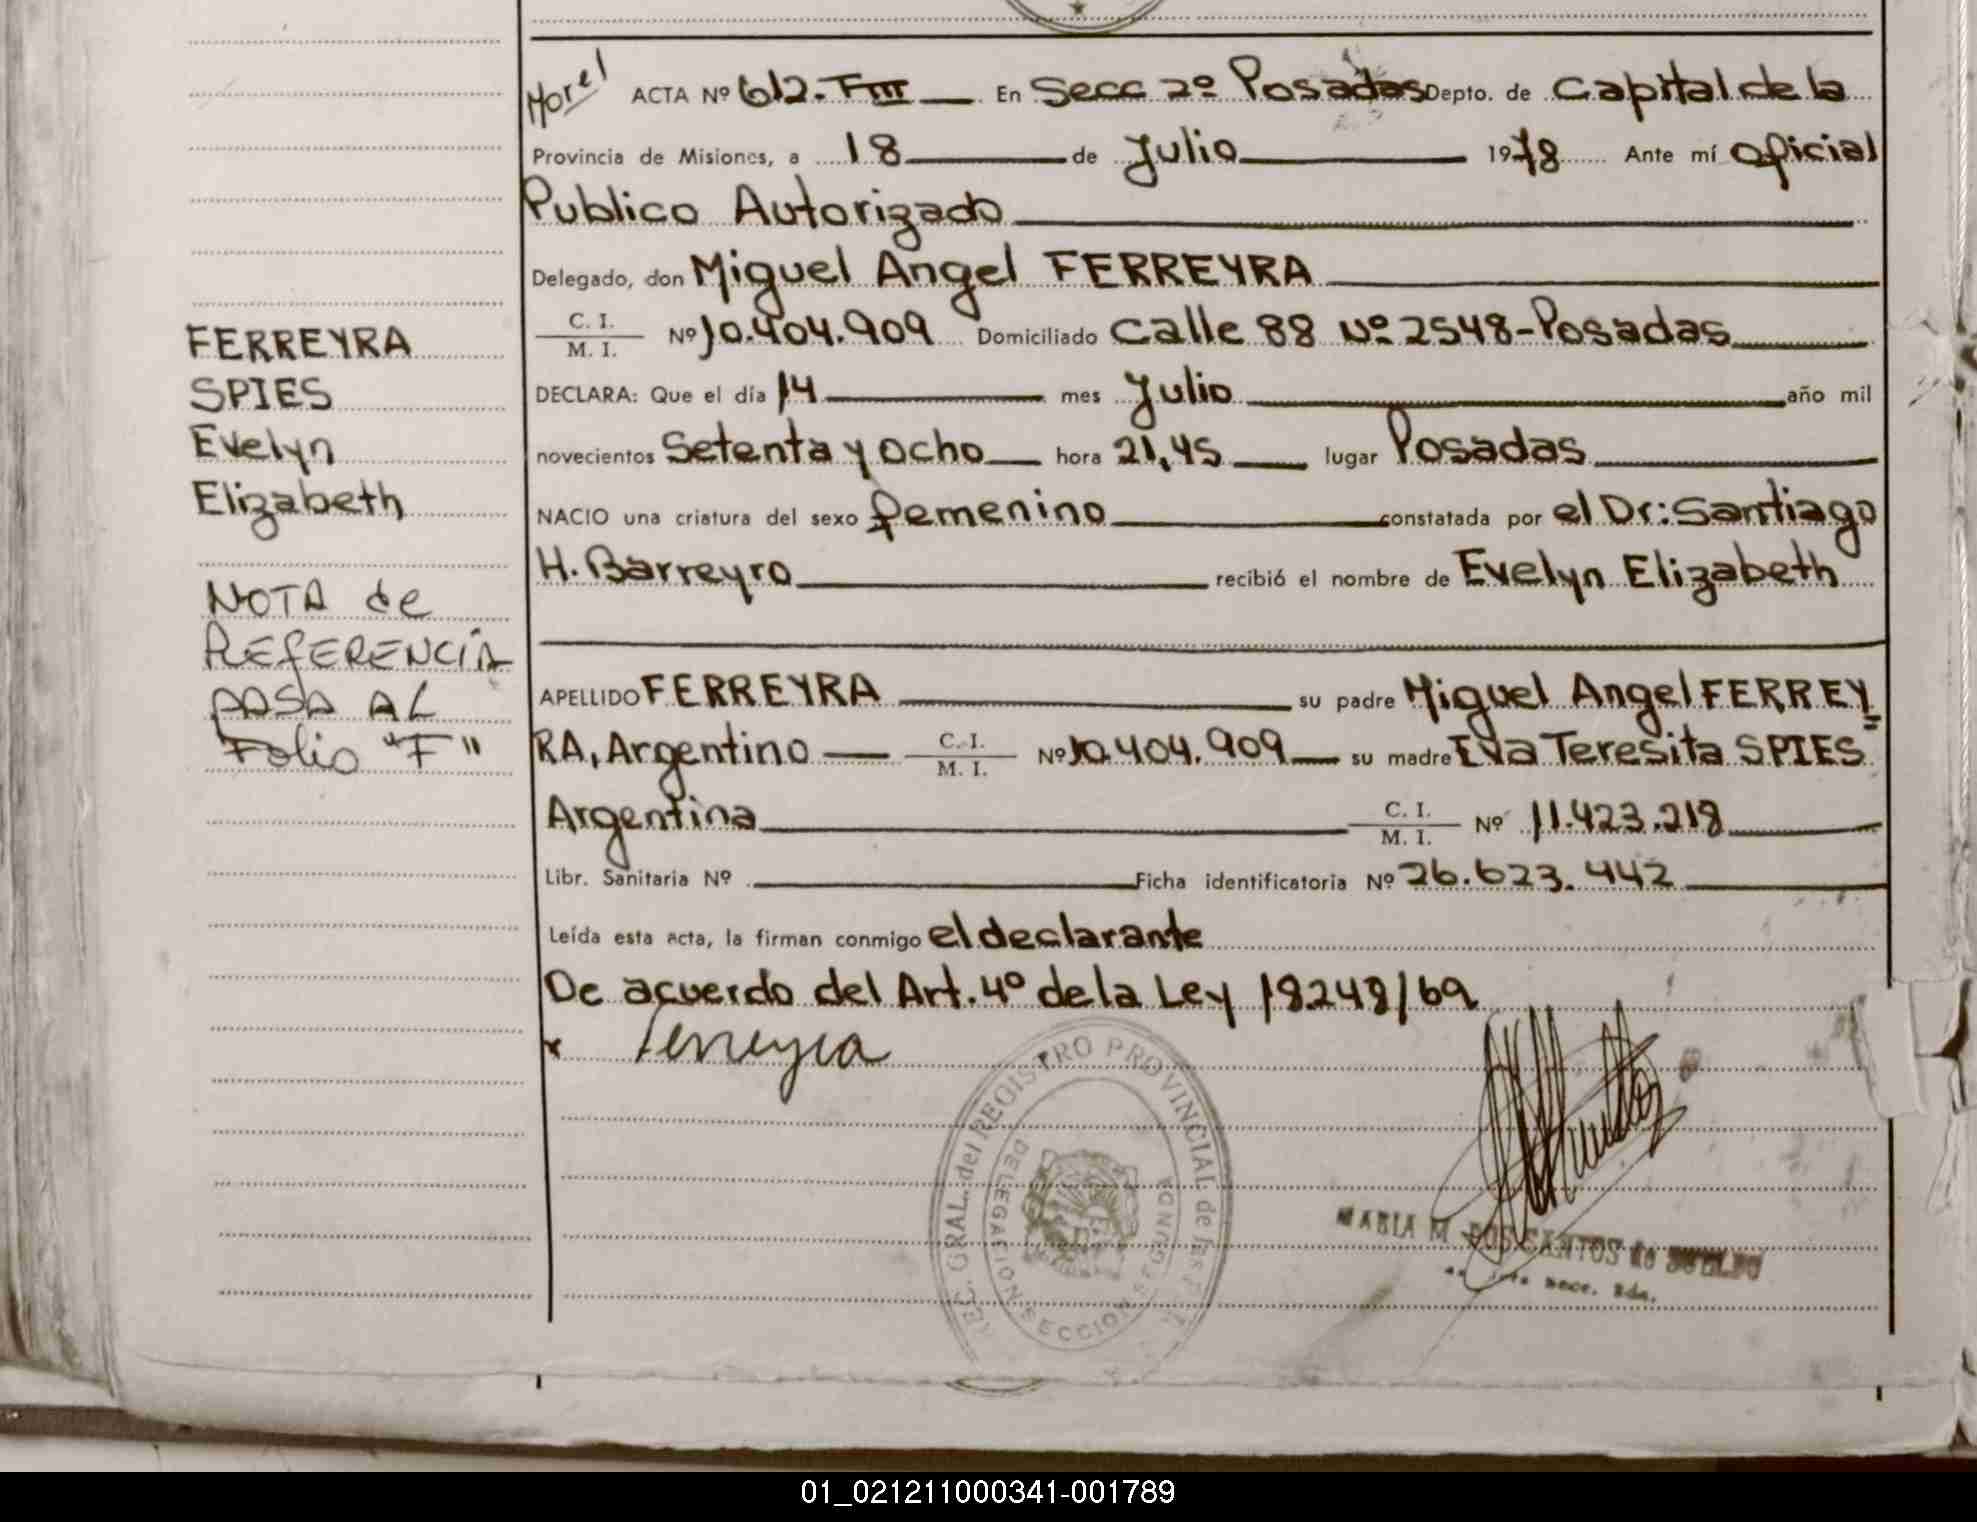 Morel ACTA Nº 612-TIII En Secc 2º Posadas Depto. de Capital de la
Provincia de Misiones, a 18 de Julio 1978 Ante mí Oficial
Publico Autorizado
Delegado, don Miguel Angel FERREYRA
C. I.
M. I. Nº 10.404.909 Domiciliado Calle 88 Nº 2548-Posadas
DECLARA: Que el día 14 mes Julio año mil
novecientos Setenta y Ocho hora 21,45 lugar Posadas
NACIO una criatura del sexo femenino constatada por el Dr: Santiago
H. Barreyro recibió el nombre de Evelyn Elizabeth
APELLIDO FERREYRA su padre Miguel Angel FERREY
RA, Argentino C. I. M. I. Nº 10.404.909 su madre Eva Teresita SPIES
Argentina C. I. M. I. Nº 11.423.218
Libr. Sanitaria Nº Ficha identificatoria Nº 26.623.442
Leída esta acta, la firman conmigo el declarante
De acuerdo del Art. 4º de la Ley 18248/69
x Ferreyra
FERREYRA
SPIES
Evelyn
Elizabeth
NOTA de
REFERENCIA
PASA AL
Folio "F"
GRAL. del REGISTRO PROVINCIAL de
DELEGACION SECCION
MARIA M. DOS SANTOS de
01_021211000341-001789